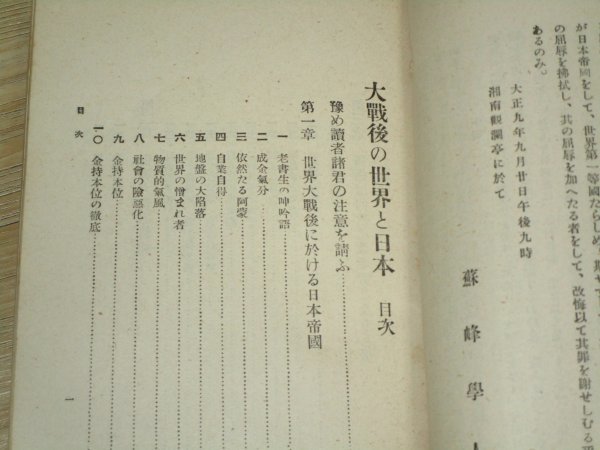 が日本帝國をして、世界第一等國たらしめ、
の屈辱を拂拭し、其の屈辱を加へたる者をして、改悔以て其罪を謝せしむる
あるのみ。
大正九年九月廿日午後九時
湘南觀瀾亭に於て
蘇峰學
大戰後の世界と日本 目次
豫め讀者諸君の注意を請ふ
第一章 世界大戰後に於ける日本帝國
一 老書生の呻吟語
二 成金氣分
三 依然たる阿蒙
四 自業自得
五 地盤の大陷落
六 世界の憎まれ者
七 物質的氣風
八 社會の險惡化
九 金持本位
一〇 金持本位の徹底
目次
一